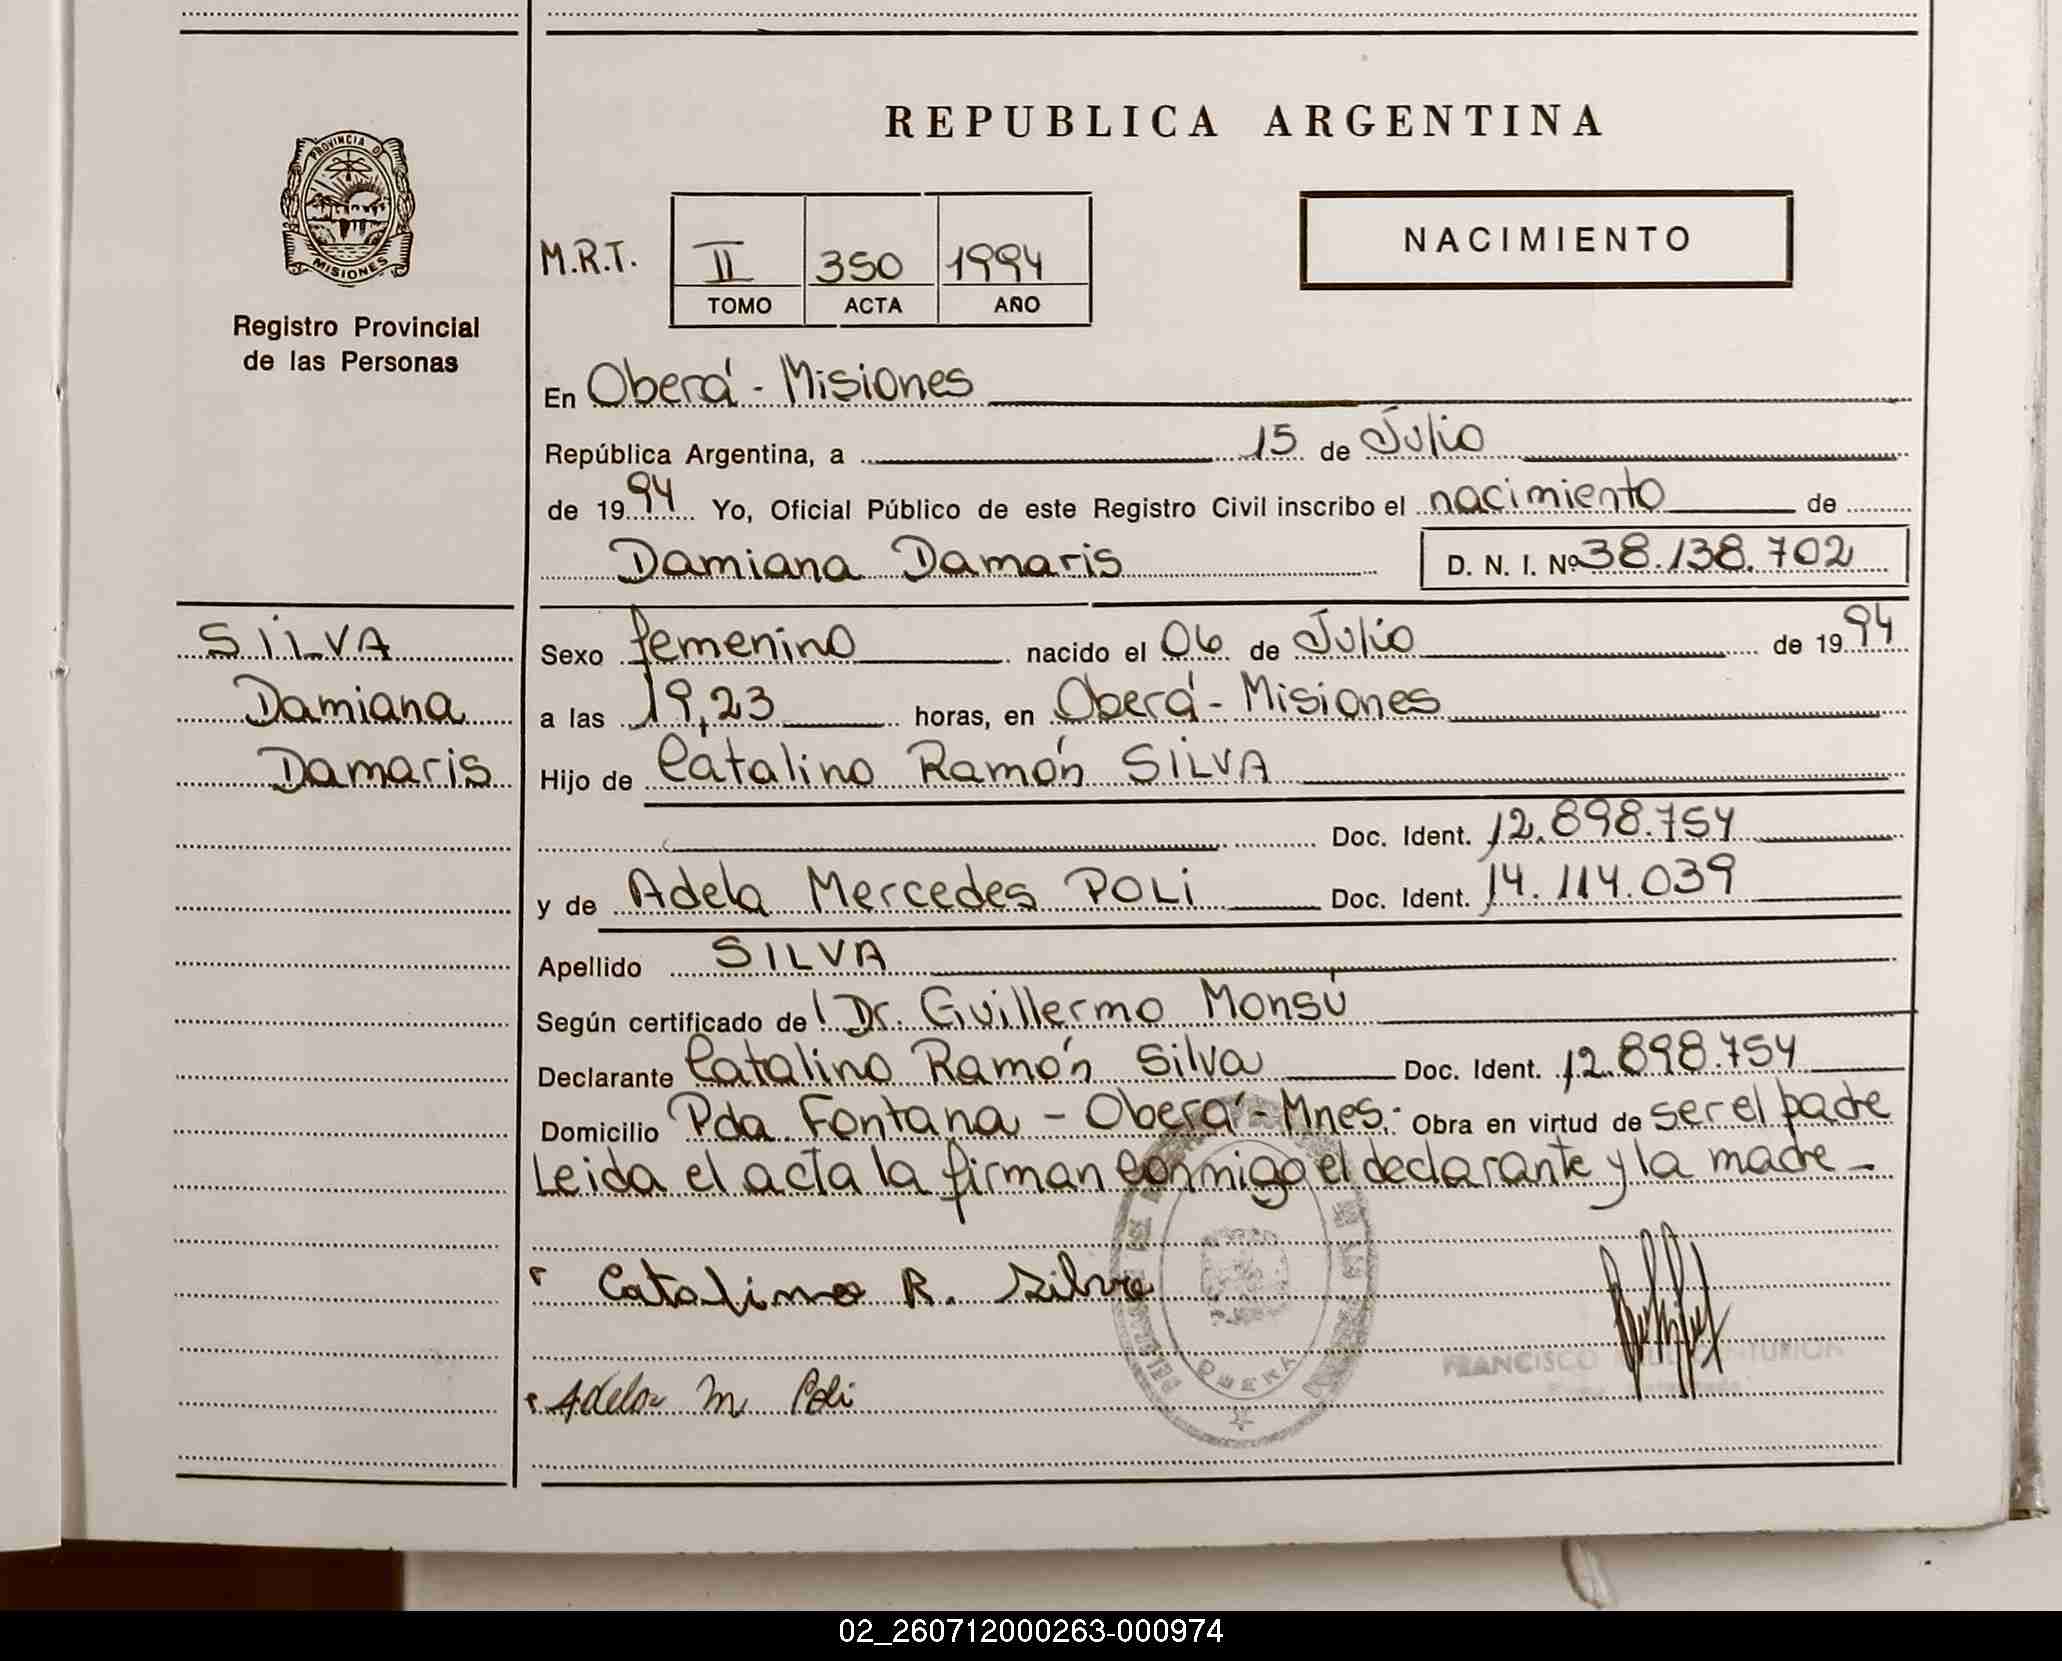 REPUBLICA ARGENTINA
PROVINCIA DE
MISIONES
Registro Provincial
de las Personas
NACIMIENTO
M.R.T. II 350 1994
TOMO ACTA AÑO
En Oberá - Misiones
República Argentina, a 15 de Julio
de 1994 Yo, Oficial Público de este Registro Civil inscribo el nacimiento de
Damiana Damaris D. N. I. Nº 38.138.702
SILVA
Damiana
Damaris
Sexo femenino nacido el 06 de Julio de 1994
a las 19,23 horas, en Oberá - Misiones
Hijo de Catalino Ramón SILVA
Doc. Ident. 12.898.754
y de Adela Mercedes POLI Doc. Ident. 14.114.039
Apellido SILVA
Según certificado de Dr. Guillermo Monsú
Declarante Catalino Ramón Silva Doc. Ident. 12.898.754
Domicilio Pda Fontana - Oberá - Mnes. Obra en virtud de ser el padre
Leida el acta la firman conmigo el declarante y la madre
Catalino R. Silva
Adela M Poli
OBERA
FRANCISCO
02_260712000263-000974